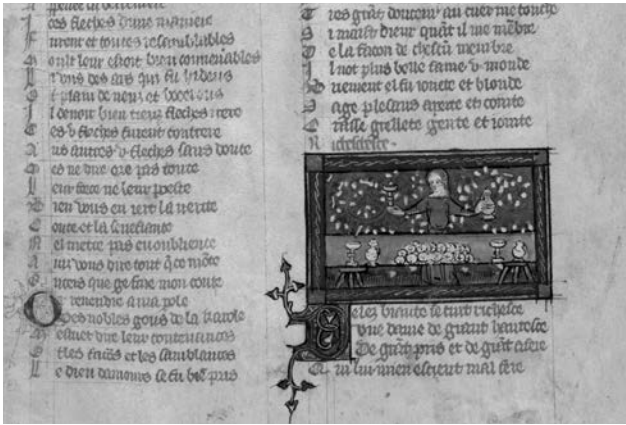 ces fleches dune maniere
F urent et toutes resamblables
M oult leur estoit bien conuenables
L i uns des ars qui fu hideus
E t plain de neuz et
I l deuoit bien tieux fleches trere
C es v fleches furent contrere
A us autres v fleches sans doute
M es ne dire ore pas toute
L eur force ne leur poeste
B ien vous en iert la verite
C onte et la senefiance
N el metre pas en oubliance
A ins vous dire tout q̄ ce mōte
A incois que ge fine mon conte
O r reuendre a ma pole
D es nobles gens de la karole
M estuet dire leur contenances
E t les facōs et les samblances
L e dieu damours se fu biē pris
T res grāt doucour au cuer me touche
S i maist dieux quāt il me mēbre
D e la facon de chascū membre
I l not plus belle fame v monde
B riement el fu ionete et blonde
S age plesans aperte et cointe
G rasse grellete gente et iointe
R ichesce
D elez biaute se tint richesce
V ne dame de grant hautesce
D e grāt pris et de grāt afere
Q ui lui mien estient mal fere